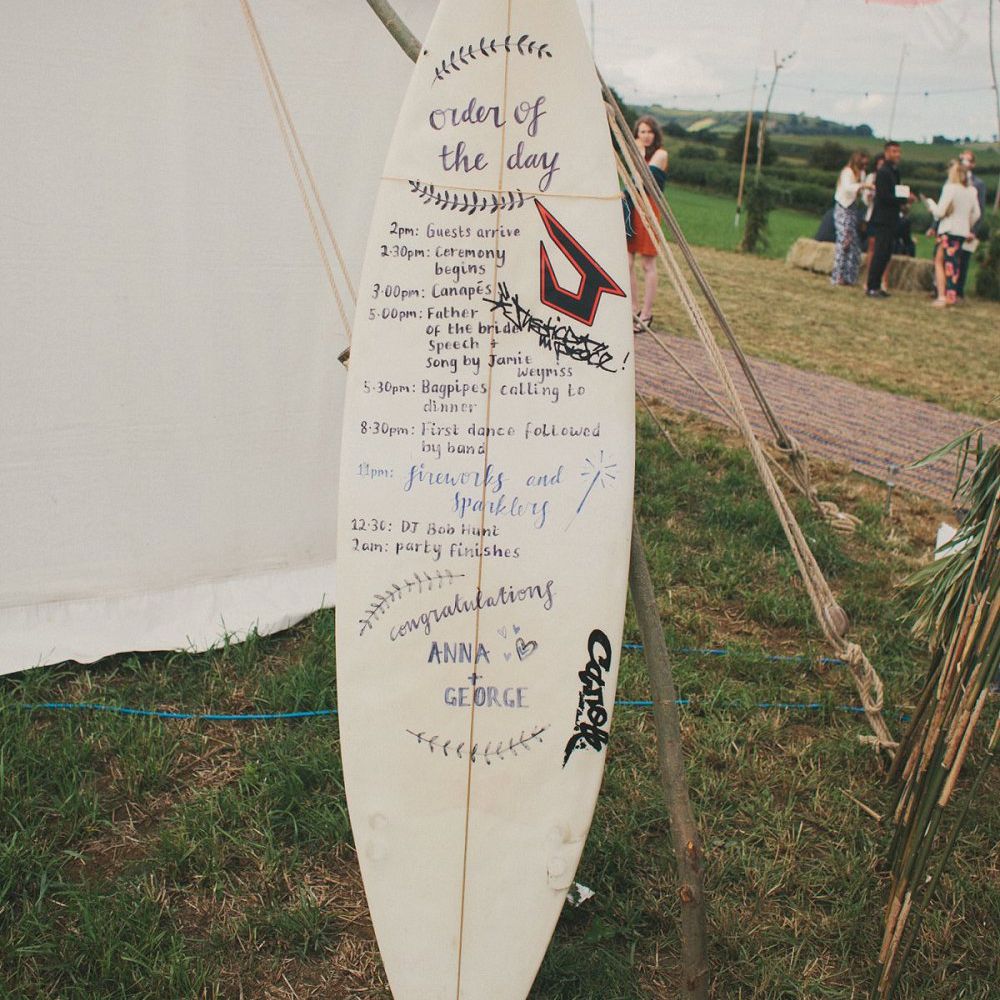 order of
the day
2pm: Guests arrive
2.30pm: Ceremony
begins
3.00pm: Canapés
5.00pm: Father
of the bride
speech +
song by Jamie
Weyriss
5.30pm: Bagpipes calling to
dinner
8.30pm: First dance followed
by band
11pm: fireworks and
sparklers
12.30: DJ Bob Hunt
2am: party finishes
congratulations
ANNA
+
GEORGE